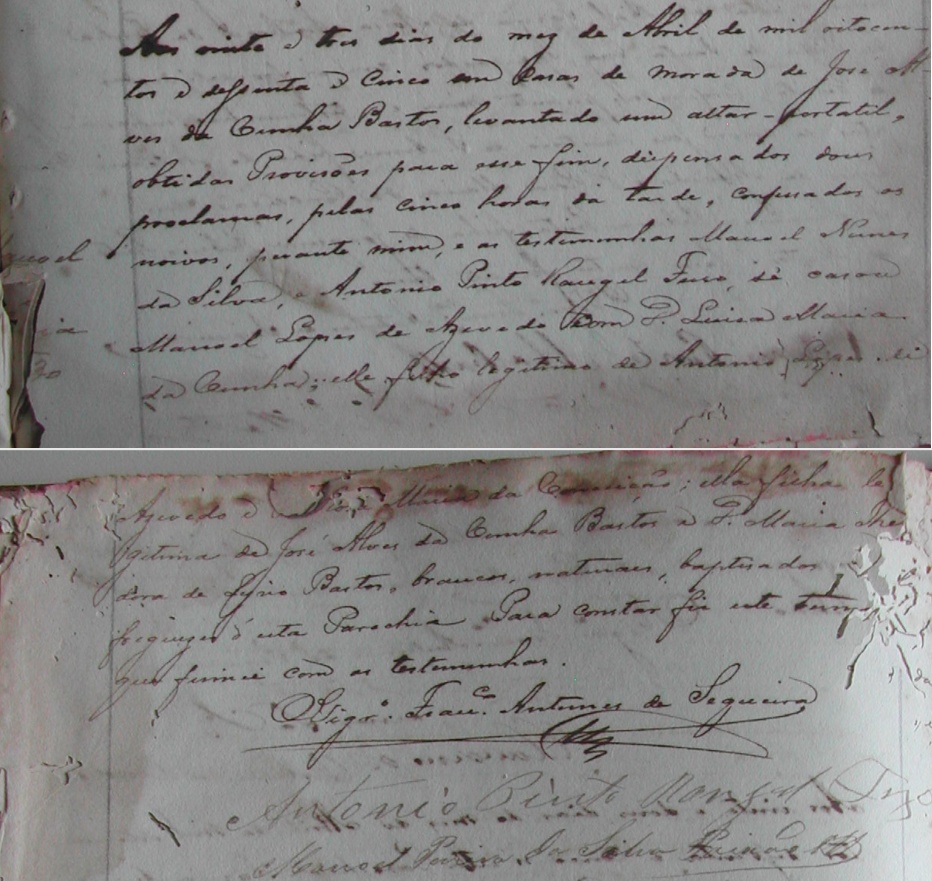 Aos vinte e tres dias do mez de Abril de mil oitocen-
tos e sessenta e cinco em casas de morada de José Al-
ves da Cunha Bastos, levantado um altar-portatil,
obtidas Provisões para esse fim, dispensados dous
proclamas, pelas cinco horas da tarde, confessados os
noivos, perante mim, e as testemunhas Manoel Nunes
da Silva, e Antonio Pinto Rangel se casou
Manoel Lopes de Azevedo com D. Luisa Maria
da Cunha; elle filho legitimo de Antonio Lopes de
Azevedo e Maria da Conceição; ella filha le
gitima de José Alves da Cunha Bastos e D. Maria The
dora de Bastos, brancos, naturaes, baptisados
freguezes d'esta Parochia Para constar fiz este termo
que firmei com as testemunhas.
Vigr.º Fran.co Antunes de Sequeira
Antonio Pinto Rangel
Manoel da Silva